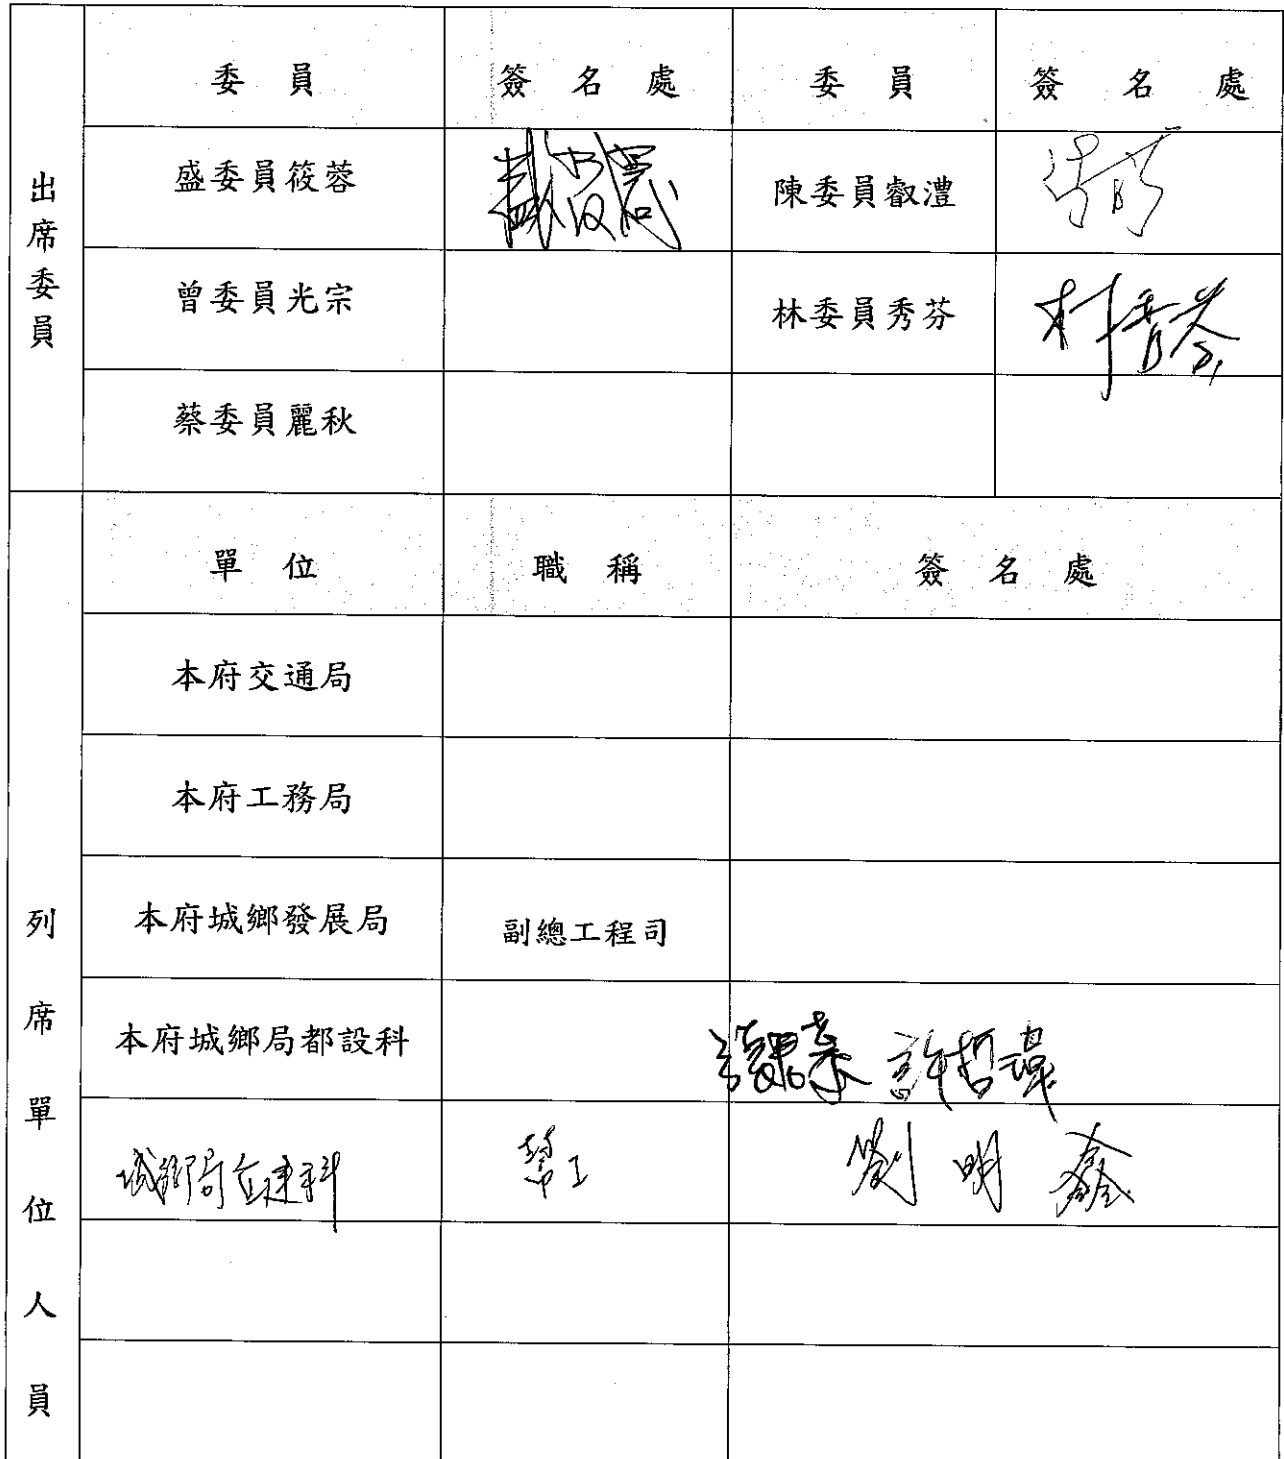 出席委員
委員 簽名處 委員 簽名處
盛委員筱蓉 陳委員叡澧
曾委員光宗 林委員秀芬 林秀芬
蔡委員麗秋
列席單位人員
單位 職稱 簽名處
本府交通局
本府工務局
本府城鄉發展局 副總工程司
本府城鄉局都設科 許哲瑋
城鄉局 幫工 劉明鑫